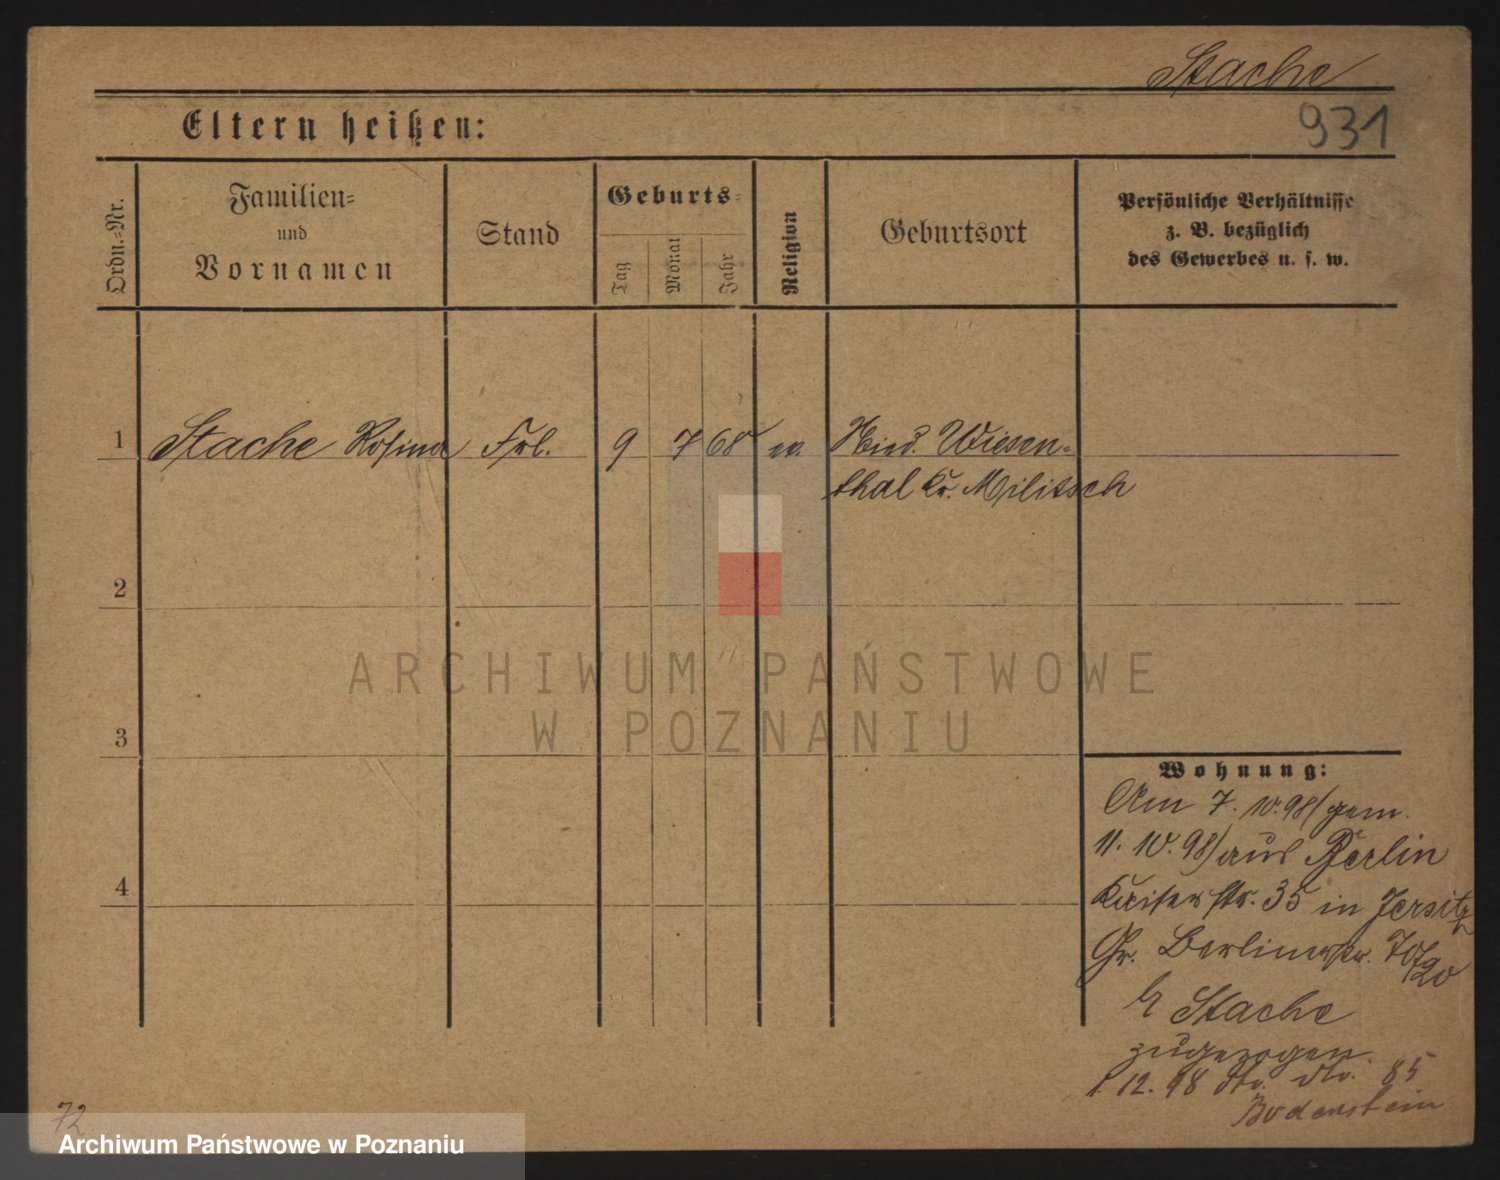 Stache
931
Eltern heißen:
Ordn.-Nr.
Familien-
und
Vornamen
Stand
Geburts-
Tag
Monat
Jahr
Religion
Geburtsort
Persönliche Verhältnisse
z. B. bezüglich
des Gewerbes u. s. w.
1 Stache Rosina Frl. 9 7 68 ev. Nied. Wiesen-
thal Kr. Militsch
2
ARCHIWUM PAŃSTWOWE
W POZNANIU
3
Wohnung:
Am 7. 10. 98 (gem.
11. 10. 98) aus Berlin
Kaiserstr. 35 in Jersitz
Gr. Berlinerstr. 70/20
b/ Stache
zugezogen.
4
1. 12. 98 85
Bodenstein
72
Archiwum Państwowe w Poznaniu